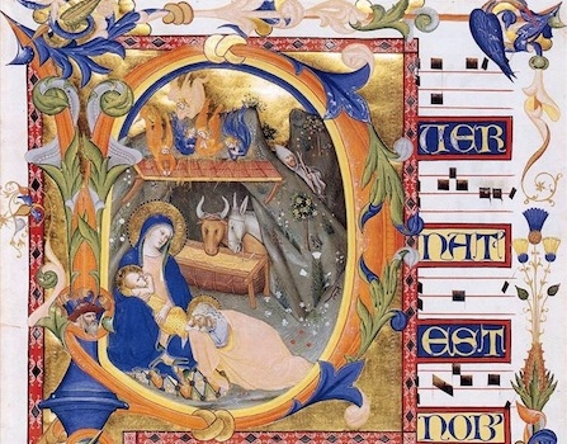 PUER
NAT
EST
NOB'